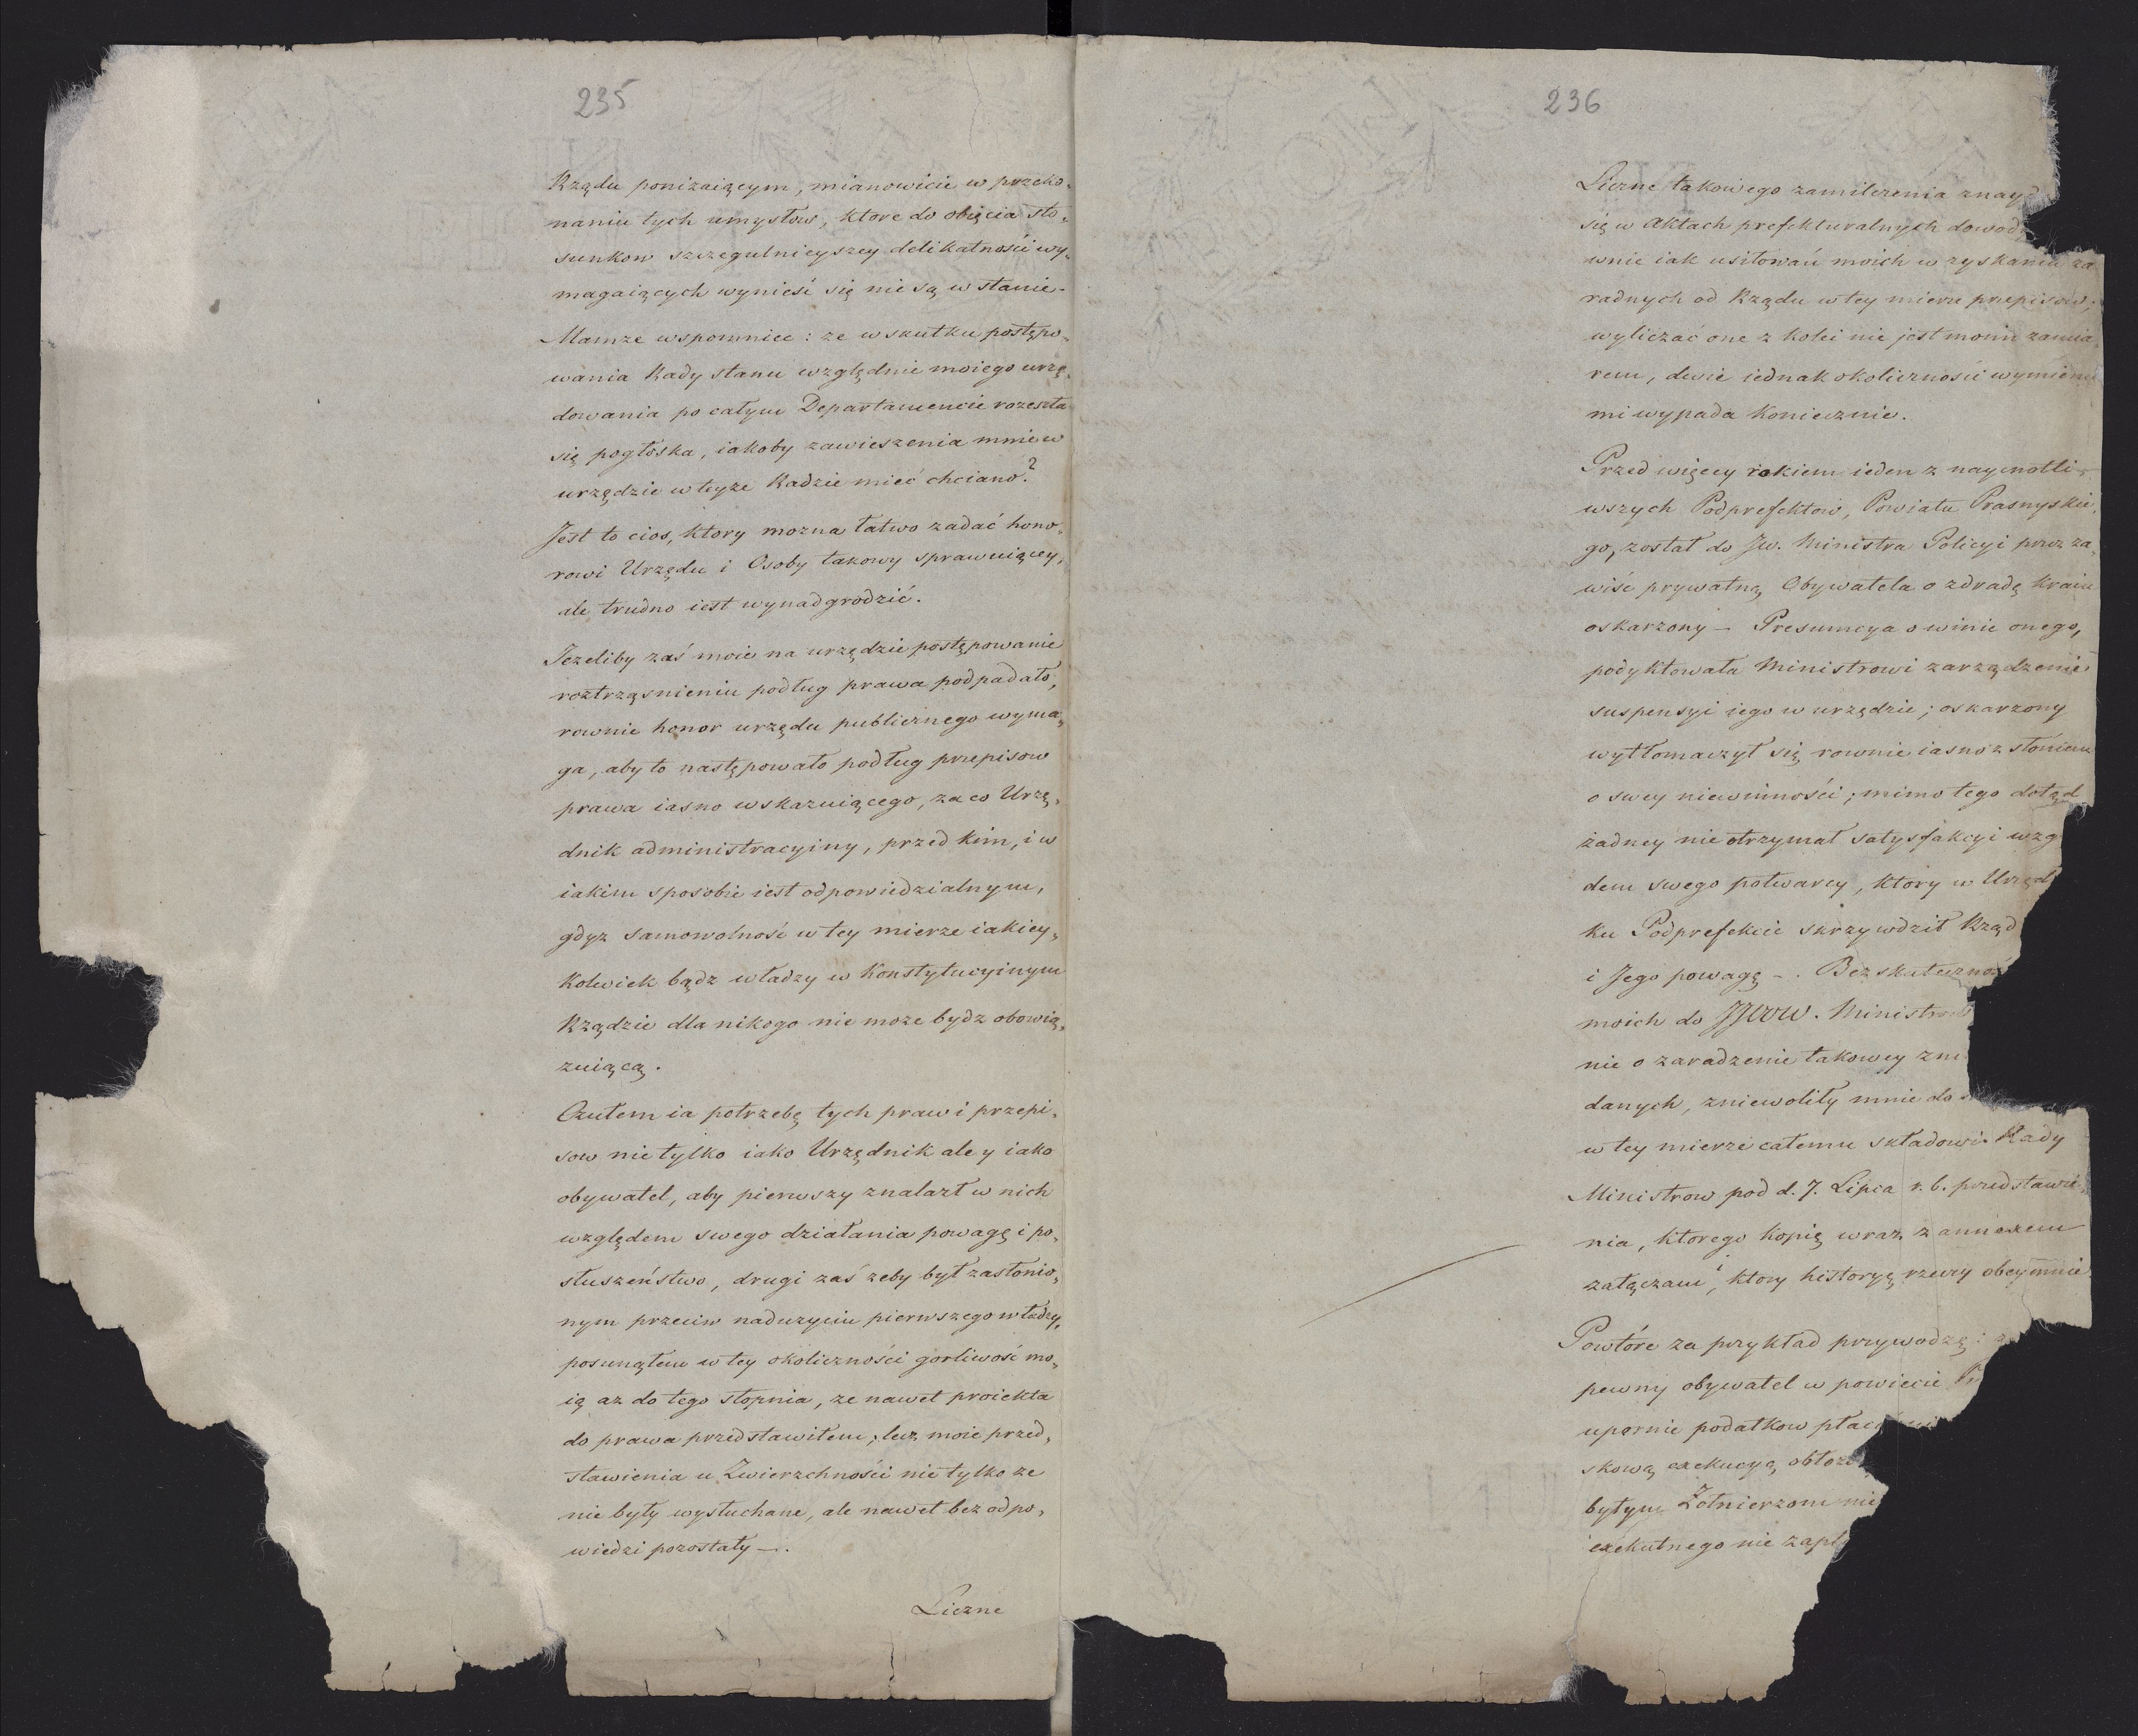 235
Rządu poniżaiącym, mianowicie w przeko,
naniu tych umysłow, ktore do obięcia sto,
sunkow szczegulnieyszey delikatności wy,
magaiących wynieść się nie są w stanie.
Mamze wspomnieć: ze w skutku postępo,
wania Rady stanu względnie moiego urzę,
dowania po całym Departamencie rozeszła
się pogłoska, iakoby zawieszenia mnie w
urzędzie w teyze Radzie mieć chciano?
Jest to cios, ktory mozna łatwo zadać hono,
rowi Urzędu i Osoby takowy sprawuiącey,
ale trudno iest wynadgrodzić.
Jezeliby zaś moie na urzędzie postępowanie
roztrząsnieniu podług prawa podpadało,
rownie honor urzędu publicznego wyma,
ga, aby to następowało podług przepisow
prawa iasno wskazuiącego, za co Urzę,
dnik administracyiny, przed kim, i w
iakim sposobie iest odpowiedzialnym,
gdyz samowolność w tey mierze iakiey,
kolwiek bądz władzy w Konstytucyinym
Rządzie dla nikogo nie może bydz obowią,
zuiącą.
Czułem ia potrzebę tych praw i przepi,
sow nie tylko iako Urzędnik ale y iako
obywatel, aby pierwszy znalazł w nich
względem swego działania powagę i po,
słuszeństwo, drugi zaś zeby był zasłonio,
nym przeciw naduzyciu pierwszego władzy,
posunąłem w tey okoliczności gorliwość mo,
ią az do tego stopnia, ze nawet proiekta
do prawa przedstawiłem; lecz moie przed,
stawienia u Zwierzchności nie tylko ze
nie były wysłuchane, ale nawet bez odpo,
wiedzi pozostały —.
Liczne
236
Liczne takowego zamilczenia znayd
się w Aktach prefekturalnych dowod
wnie iak usiłowań moich w zyskaniu za
radnych od Rządu w tey mierze przepisow,
wyliczać one z kolei nie jest moim zamia,
rem, dwie iednak okoliczności wymienić
mi wypada koniecznie.
Przed więcey rokiem ieden z naycnotli,
wszych Podprefektow, Powiatu Prasnyskie,
go, został do JW. Ministra Policyi przez za,
wiść prywatną Obywatela o zdradę kraiu
oskarzony — Presumcya o winie onego,
podyktowała Ministrowi zarządzenie
suspensyi iego w urzędzie; oskarzony
wytłomaczył się rownie iasno z słońcem
o swey niewinności; mimo tego dotąd
żadney nie otrzymał satysfakcyi wzg
dem swego potwarcy, ktory w Urzęd
ku Podprefekcie skrzywdził Rząd
i Jego powagę —. Bezskuteczność
moich do JJWW. Ministrow
nie o zaradzenie takowey
danych, zniewoliły mnie do
w tey mierze całemu składowi Rady
Ministrow pod d. 7. Lipca r. b. przedstawie,
nia, ktorego kopię wraz z annexem
załączam, ktory historyę rzeczy obeymuie
Powtóre za przykład przywodzę:
pewny obywatel w powiecie
upornie podatkow
skową exekucyą
byłym Żołnierzom nie
exekutnego nie